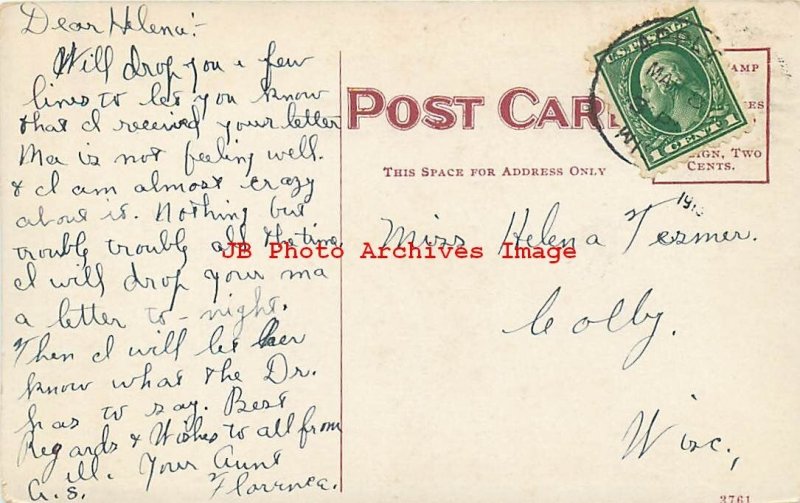 Dear Helena:-
Will drop you a few
lines to let you know
that I received your letter
Ma is not feeling well.
& I am almost crazy
about it. Nothing but
trouble trouble all the time
I will drop your ma
a letter to-night.
Then I will let her
know what the Dr.
has to say. Best
Regards & Wishes to all from
a.s. ill. Your Aunt
Florence.
POST CAR
THIS SPACE FOR ADDRESS ONLY
U.S. POSTAGE
1 CENT 1
SIGN, TWO
CENTS.
Miss Helena Tesmer.
Colby.
Wisc,
3761
JB Photo Archives Image